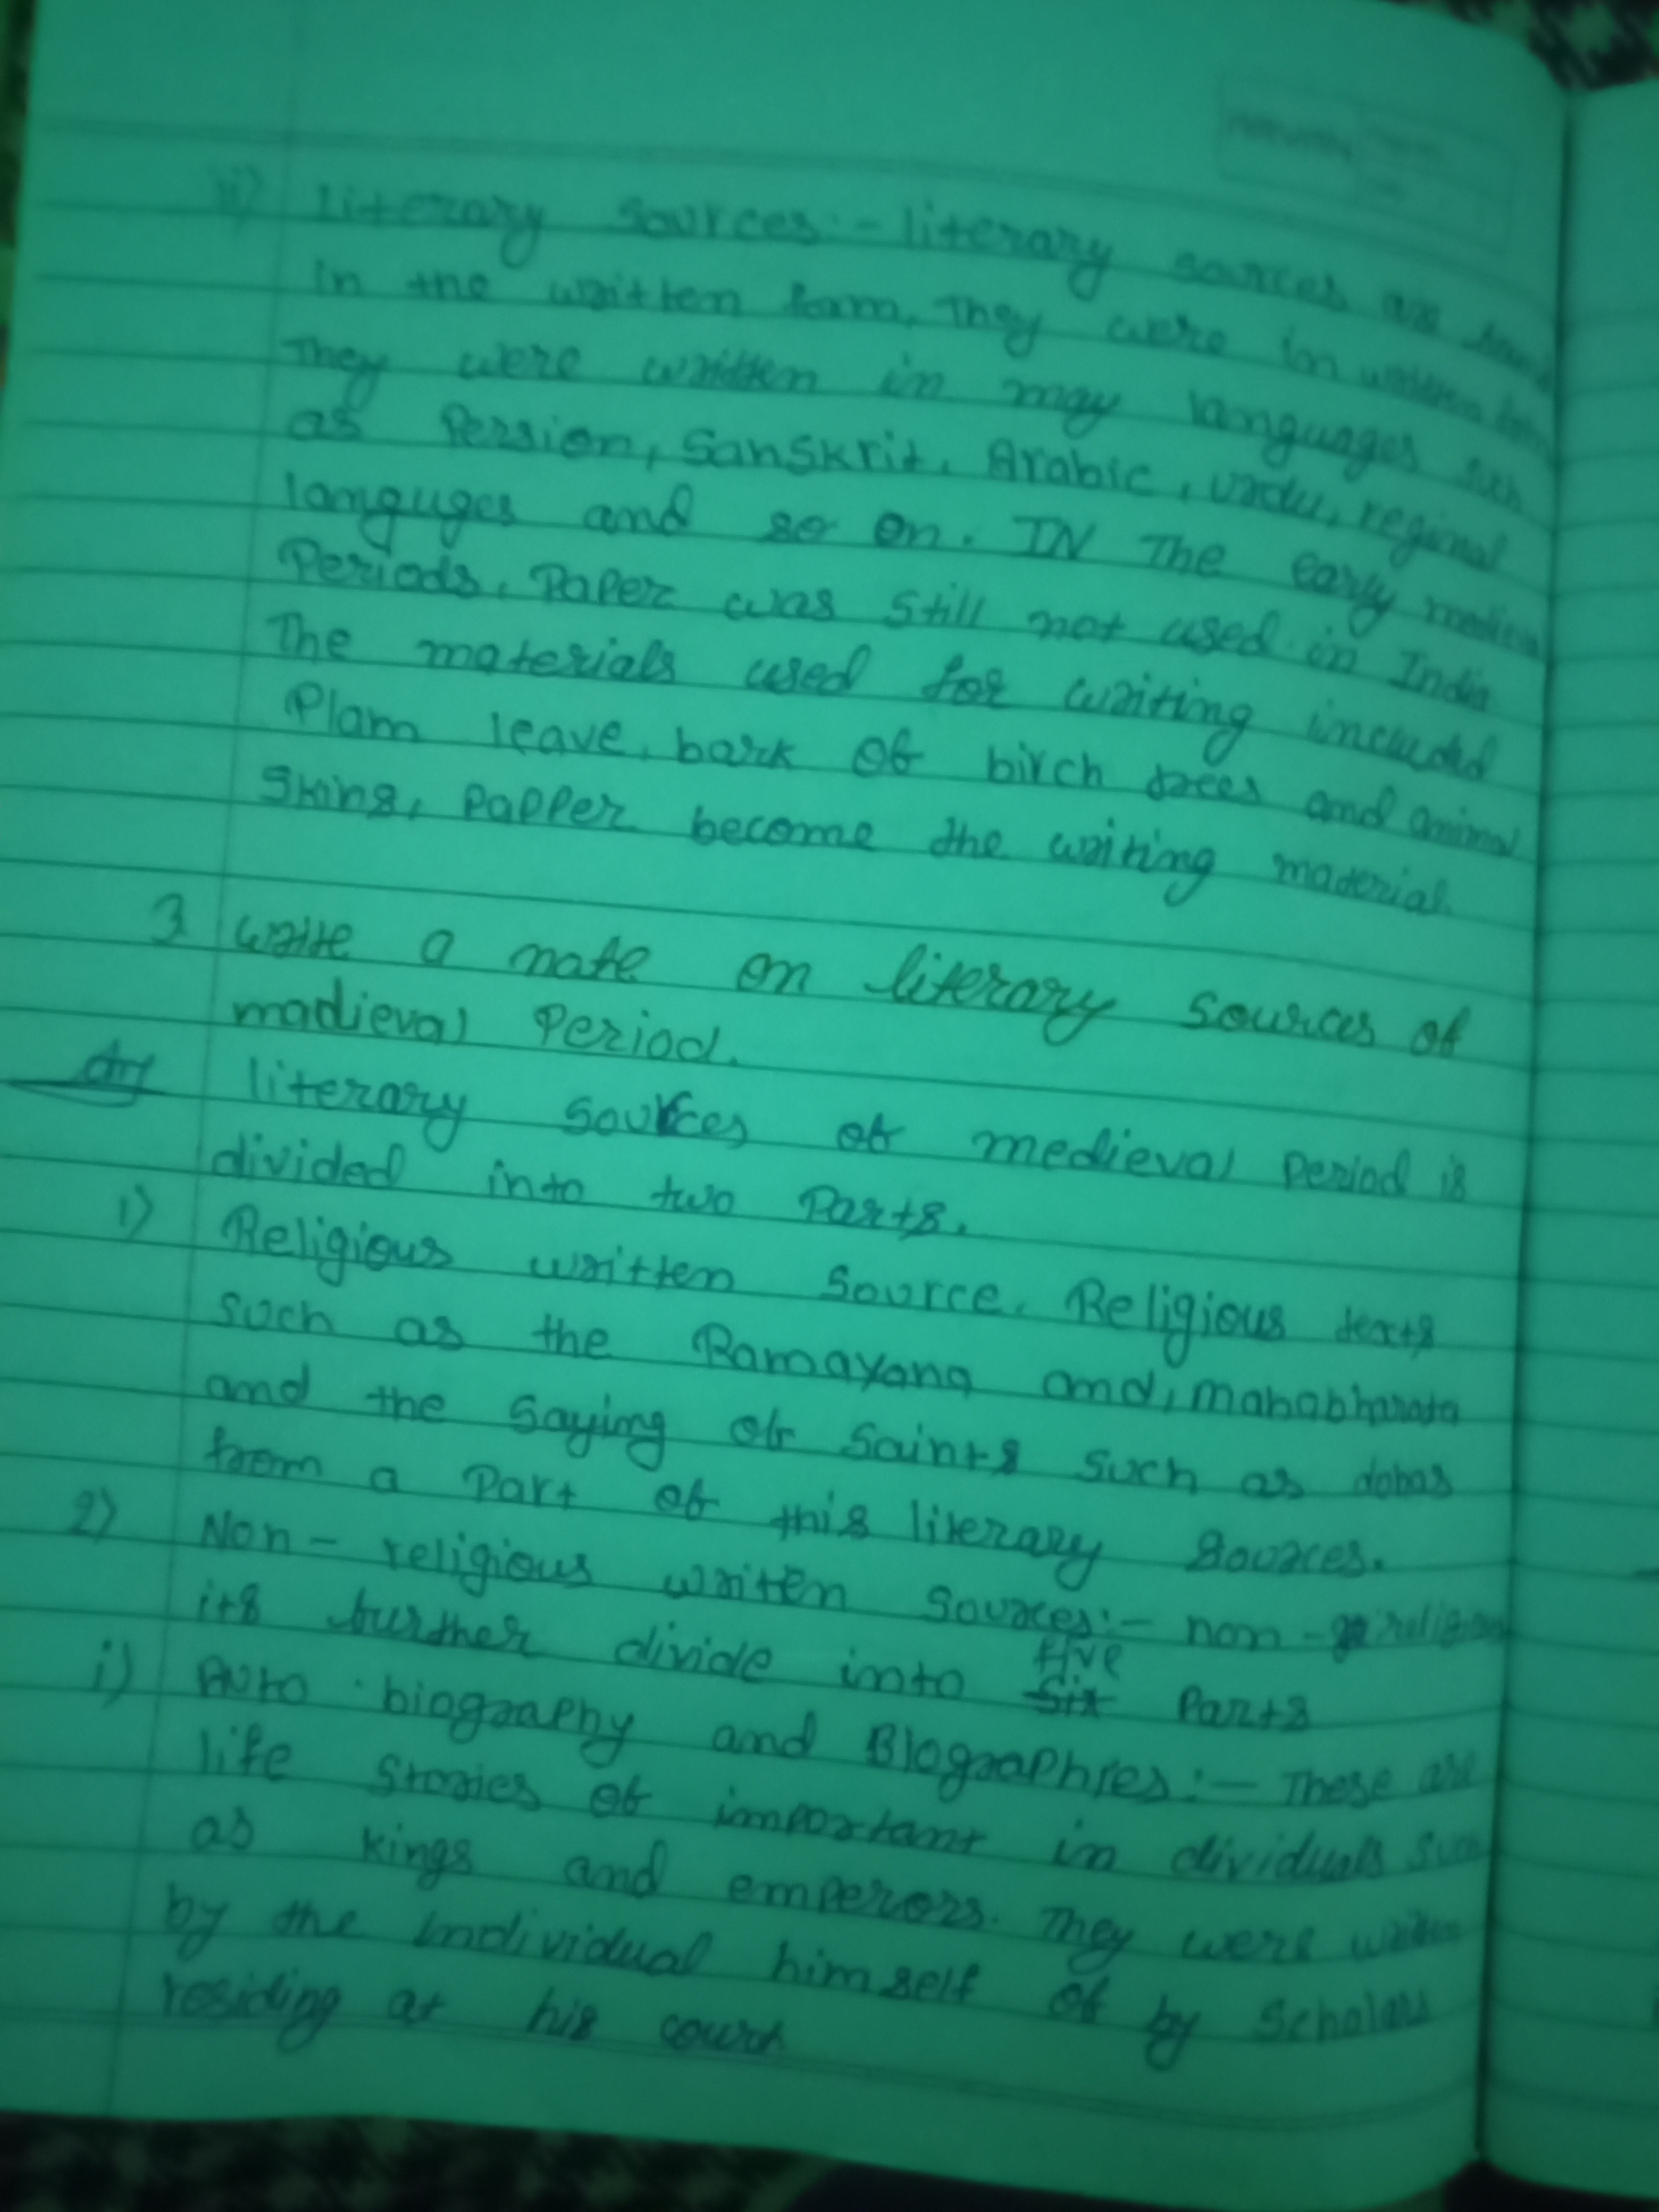 ii) Literary sources:- literary sources are found
in the written form. They were in written form
They were written in may languages such
as Persion, Sanskrit, Arabic, urdu, reginal
languges and so on. IN The early medieval
Periods, Paper was still not used in India
The materials used for writing included
Plam leave, bark of birch trees and animal
Skins, Papper become the writing material.
3 write a note on literary sources of
madieval Period.
Ans literary sources of medieval period is
divided into two Parts.
1) Religious written Source. Religious texts
such as the Ramayana and, mahabharata
and the saying of Saints such as dohas
from a Part of this literary Sources.
2) Non-religious written Sources:- non-religious
its further divide into five Parts
i) Auto biography and Biographies:- These are
life stories of important in dividuals such
as kings and emperors. They were written
by the individual himself of by Scholars
residing at his court